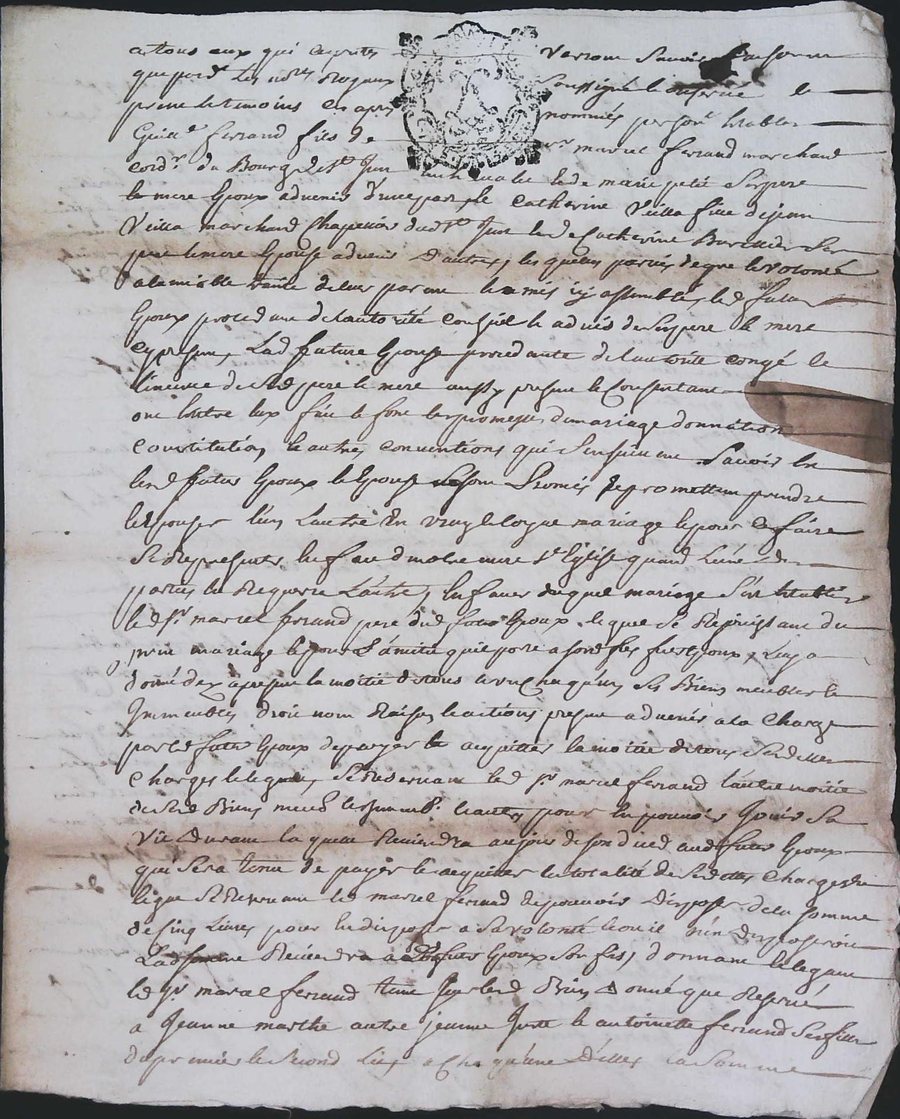 a tous ceux qui ces p̃ntes verrons Savoir faisons
que pard les no.res Royaux soussigné le
p̃sence les temoins cy apres nommés person.t etablis
ferrand fils de S.r marcel ferrand marchand
cord.r du Bourg de S.t Just en chevalet & de marie petit Ses pere
& mere Epoux advenir d'une part, & Catherine Vialla fille de jean
Vialla marchand Chapellier dud S.t Just & de Catherine Ses
pere & mere Epouse advenir d'autre, lesquels parties de gré & volonté
alamiable traité de leur parans & amis icy assemblés led futur
Epoux procedant de l'autorité conseil & advis de Ses pere & mere
cy presens, Lad future Epouse procedante de l'autorité congé &
licence de Sesd pere & mere aussy presens & Consentans
ont entre eux fait & font les promesses de mariage donnation
constitution & autres conventions qui S'ensuivent Savoir en
lesd futur Epoux & Epouse Se Sont Promis & promettent prendre
& Epouser l'un L'autre En vray & loyal mariage & pour ce faire
Se Representer en face de notre mere S.te Eglise quand L'une des
parties en Requerra L'autre, En faveur duquel mariage S'est Etably
led S.r marcel ferrand pere dud futur Epoux, lequel Se Rejouissant du
p̃nt mariage & pour L'amitié quil porte a sond fils futur Epoux, Luy a
donné des apresent la moitié de tous & un chaqu'un Ses Biens meubles &
Immeubles droit nom Raisons & actions presens advenirs a la Charge
par led futur Epoux de payer & acquitter la moitié de tous Ses dettes
Charges & legats, Se Reservant led S.r marcel ferrand l'autre moitié
de Sesd Biens meub. & Immeub. & autres pour en pouvoir Jouir Sa
Vie durant laquelle Reviendra au jour de son deced aud futur Epoux
qui Sera tenu de payer & acquitter la totalité de Ses dettes Charges &
Se Reservant led marcel ferrand de pouvoir Disposer de la Somme
de Cinq Livres pour en disposer a Sa volonté & ou il n'en Disposeroit
Lad Somme Reviendra aud futur Epoux Son fils, donnant & legant
led S.r marcel ferrand tant Sur lesd Biens Donné que Reservé
a Jeanne marthe autre jeanne Juste & antoinette ferrand Ses filles
de premier & Second Lits a Chaqu'une d'elles la Somme